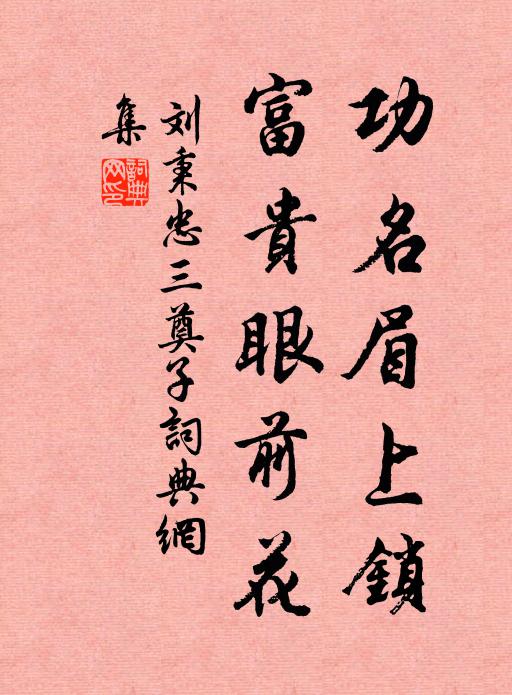 功名眉上鎖
富貴眼前花
刘秉忠三奠子詞典網
集
詞典網印